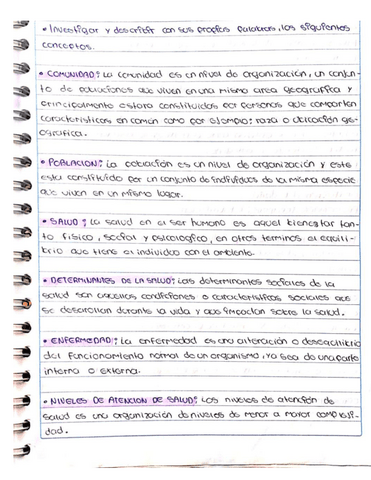 • Investigar y describir con sus propias palabras, los siguientes
conceptos.
• COMUNIDAD: La comunidad es un nivel de organización, un conjun-
to de poblaciones que viven en una mismo area geografica y
principalmente estara constituidas por personas que comparten
caracteristicas en común como por ejemplo: raza o ubicación ge-
ografica.
• POBLACION: La población es un nivel de organización y este
esta constituido por un conjunto de individuos de la misma especie
que viven en un mismo lugar.
• SALUD: La salud en el ser humano es aquel bienestar tan-
to fisico, social y psicologico, en otros terminos al equili-
brio que tiene el individuo con el ambiente.
• DETERMINANTES DE LA SALUD: Los determinantes sociales de la
salud son aquellas condiciones o caracteristicas sociales que
se desarrollan durante la vida y que impactan sobre la salud.
• ENFERMEDAD: La enfermedad es una alteración o desequilibrio
del funcionamiento normal de un organismo, ya sea de una parte
interna o externa.
• NIVELES DE ATENCION DE SALUD: Los niveles de atención de
salud es una organización de niveles de menor a mayor compleji-
dad.